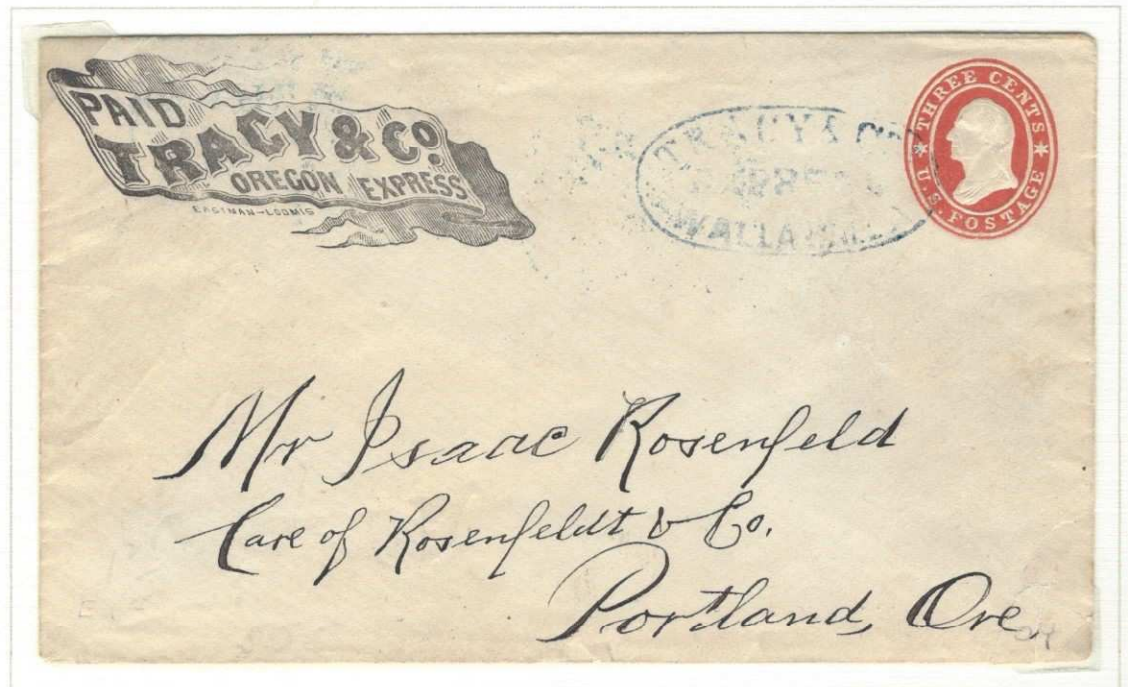 PAID
TRACY & Co.
OREGON EXPRESS
EASTMAN-LOOMIS
TRACY & Co
WALLA
THREE CENTS
U.S. POSTAGE
Mr Isaac Rosenfeld
Care of Rosenfeldt & Co.
Portland, Ore